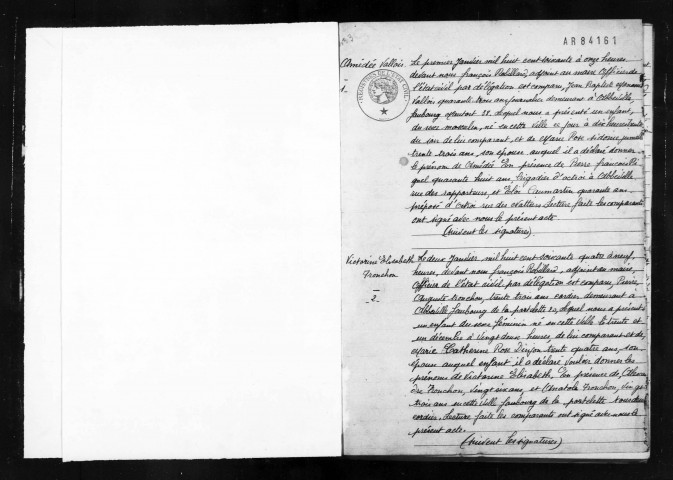 AR 84161
Amédée Vallois
1.
Le premier Janvier mil huit cent soixante à onze heures
devant nous françois Robillard, adjoint au maire officier de
l'état civil par délégation est comparu, Jean Baptiste
Vallois quarante trois ans journalier demeurant à Abbeville,
faubourg 58. Lequel nous a présenté un enfant,
du sexe masculin, né en cette ville ce jour à dix heures
du soir de lui comparant, et de Marie Rose
trente trois ans, son épouse auquel il a déclaré donner
le prénom de Amédée. En présence de Pierre françois
quel quarante huit ans, brigadier d'octroi à Abbeville
rue des rapporteurs, et Eloi Caumartin quarante ans
préposé d'octroi rue des Nattiers. Lecture faite les comparants
ont signé avec nous le présent acte
(suivent les signatures)
Victorine Elisabeth
Tronchon
2
Le deux Janvier mil huit cent soixante quatre à neuf
heures, devant nous françois Robillard, adjoint au maire,
officier de l'état civil par délégation est comparu, Pierre
Auguste Tronchon, trente trois ans cordier demeurant à
Abbeville faubourg de la portelette 20, Lequel nous a présenté
un enfant du sexe féminin né en cette ville le trente et
un décembre à vingt deux heures, de lui comparant et de
Marie Catherine Rose trente quatre ans, son
épouse auquel enfant il a déclaré vouloir donner les
prénoms de Victorine Elisabeth, En présence de,
Tronchon, vingt six ans, et Anatole Tronchon, vingt
trois ans en cette ville faubourg de la portelette tous deux
cordier. Lecture faite les comparants ont signé avec nous le
présent acte.
(suivent les signatures)